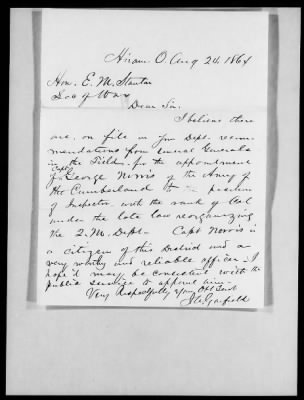 Hiram O. Aug 24 1864
Hon. E. M. Stanton
Sec of War
Dear Sir.
I believe there
are, on file in your Dept. recom-
mendations from several Generals
in the Field, for the appointment
of Capt George Norris of the Army of
the Cumberland to the position
of Inspector with the rank of Col
under the late law reorganizing
the Q. M. Dept. Capt Norris is
a citizen of this District and a
very worthy and reliable officer. I
hope it may be consistent with the
public service to appoint him
Very Respectfully Your Obt Servt
J. A. Garfield